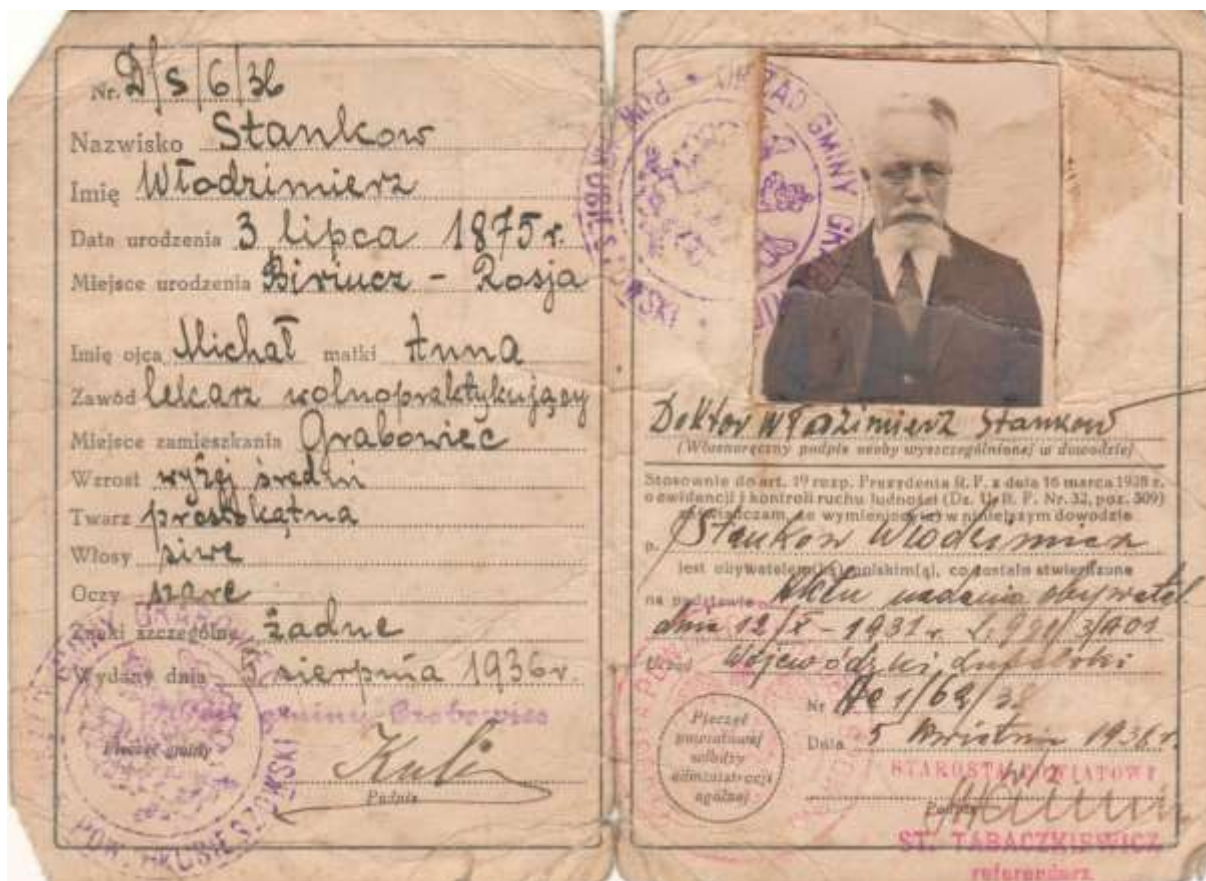 Nr. D/S/6/36
Nazwisko Stankow
Imię Włodzimierz
Data urodzenia 3 lipca 1875 r.
Miejsce urodzenia Biriucz - Rosja
Imię ojca Michał matki Anna
Zawód lekarz wolnopraktykujący
Miejsce zamieszkania Grabowiec
Wzrost wyżej średni
Twarz prostokątna
Włosy siwe
Oczy szare
Znaki szczególne żadne
Wydany dnia 5 sierpnia 1936 r.
gminy Grabowiec
Pieczęć gminy
Podpis
POW. HRUBIESZOWSKI
URZĄD GMINY
POW. HRUBIESZOWSKI
Doktor Włodzimierz Stankow
(Własnoręczny podpis osoby wyszczególnionej w dowodzie)
Stosownie do art. 19 rozp. Prezydenta R. P. z dnia 16 marca 1928 r.
o ewidencji i kontroli ruchu ludności (Dz. U. R. P. Nr. 32, poz. 309)
zaświadczam, że wymieniony(a) w niniejszym dowodzie
p. Stankow Włodzimierz
jest obywatelem(ką) polskim(ą), co zostało stwierdzone
na podstawie Aktu nadania obywatel.
dnia 12/X - 1931 r.
Urząd Wojewódzki Lubelski
Nr
Dnia 5 kwietnia
Pieczęć
powiatowej
władzy
administracji
ogólnej
STAROSTA POWIATOWY
Podpis
ST. TABACZKIEWICZ
referendarz